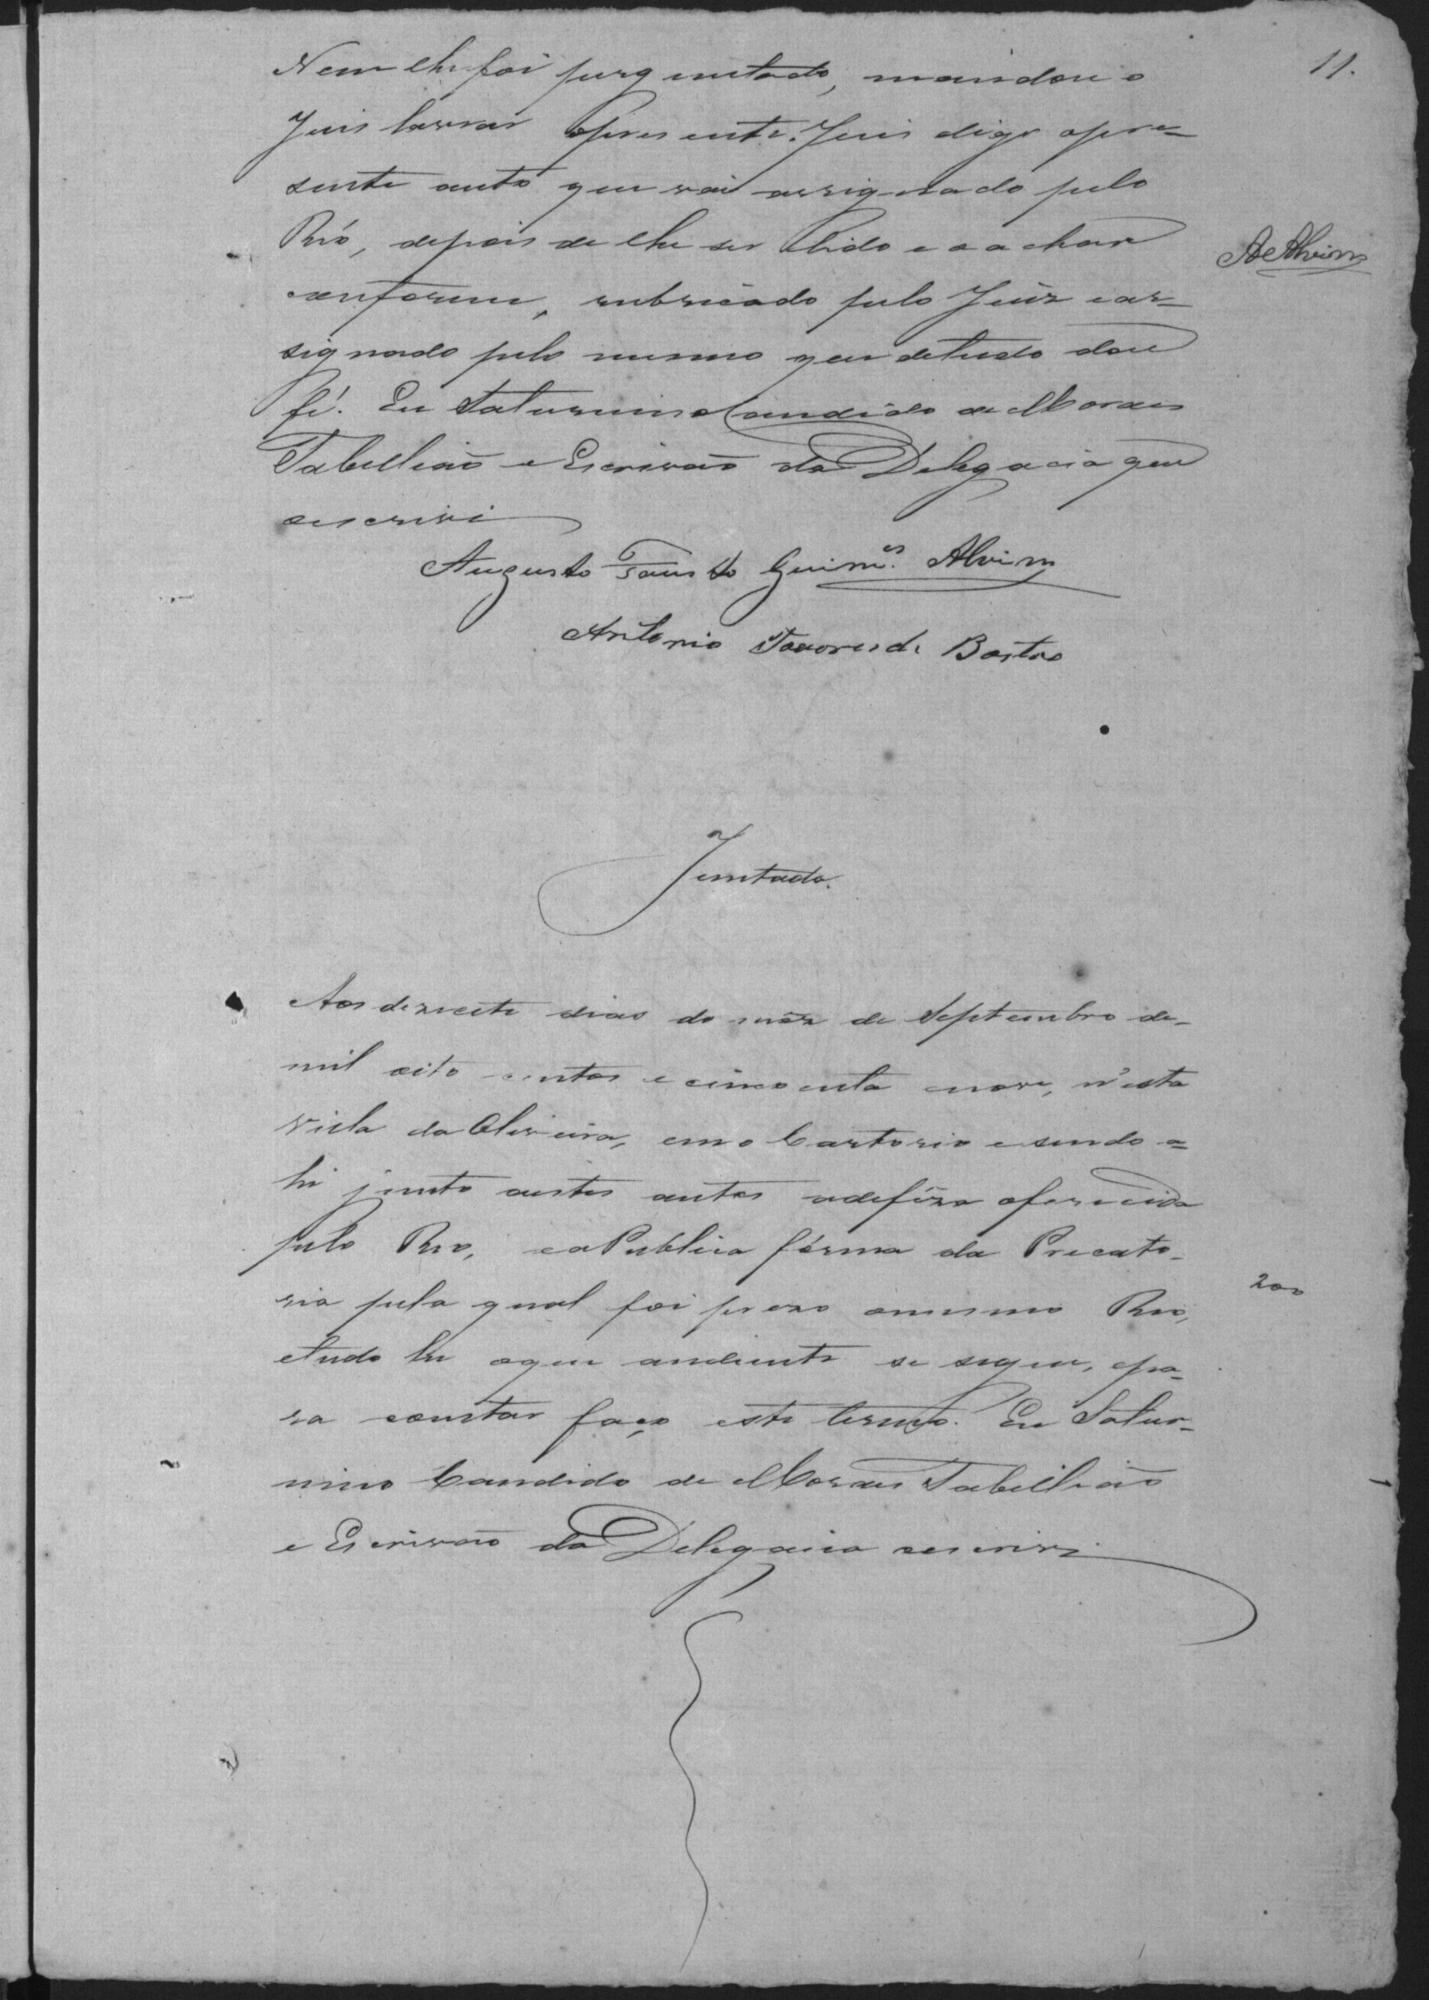 11.
Nem lhe foi perguntado, mandou o
Juis lavrar opresente. Juis digo opre-
sente auto que vai assignado pelo
Réo, depois de lhe ser lido e o achar
conforme, rubricado pelo Juiz e as-
signado pelo mesmo que detudo dou
fé. Eu Saturnino Candido de Moraes
Tabellião e Escrivão da Delegacia que
oescrivi
AeAlvim
Augusto Fausto Guim.es Alvim
Antonio Tavares de Bastos
Juntada.
Aos desesete dias do mêz de Septembro de-
mil oito centos e cincoenta enove, n'esta
Villa da Oliveira, em o Cartorio e sendo a-
hi junto aestes autos adefêza oferecida
pelo Reo, ea Publica fórma da Precato-
ria pela qual foi prezo omesmo Reo,
etudo he oque andiente se segue, epa-
ra constar faço este termo. Eu Satur-
nino Candido de Moraes Tabellião
e Escrivão da Delegacia oescrivi
200